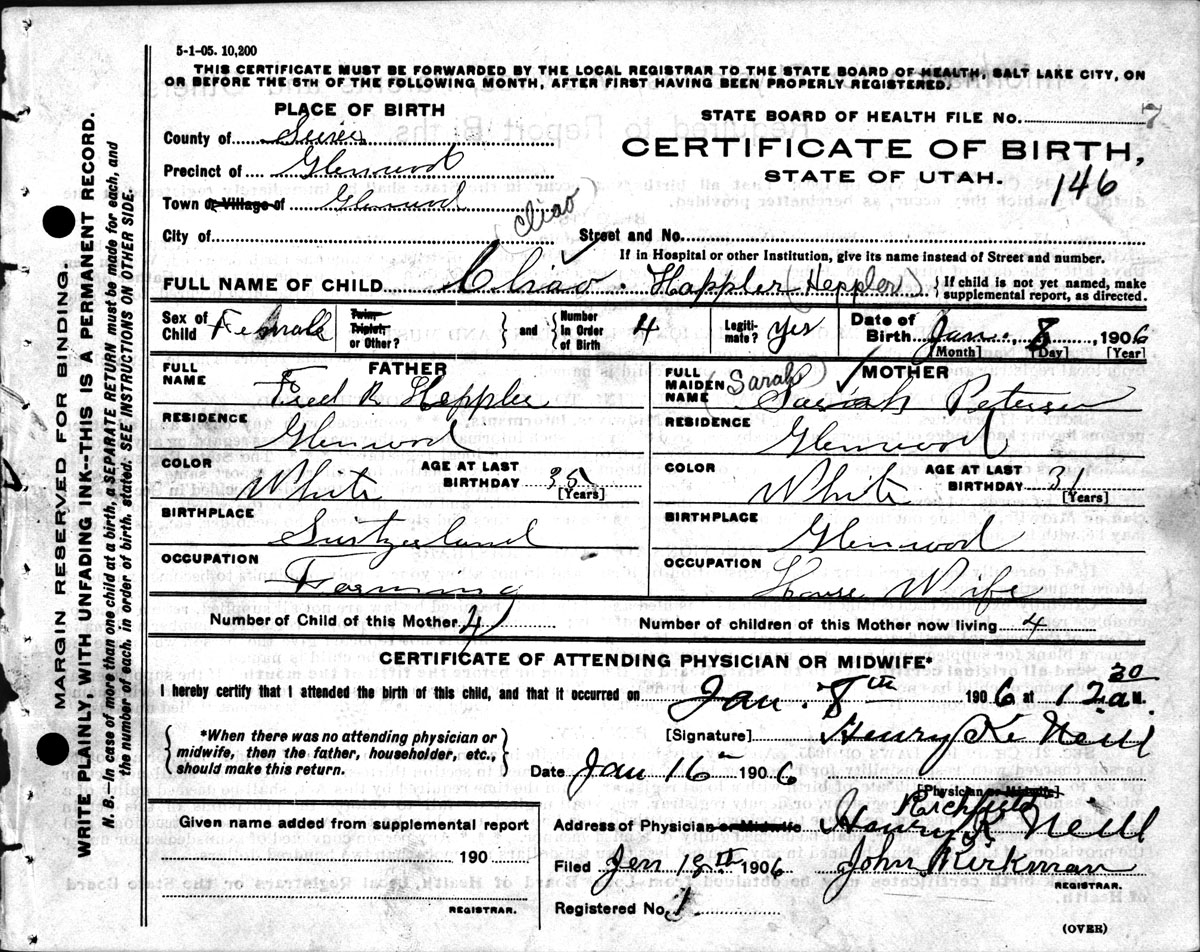 5-1-05. 10,200
THIS CERTIFICATE MUST BE FORWARDED BY THE LOCAL REGISTRAR TO THE STATE BOARD OF HEALTH, SALT LAKE CITY, ON
OR BEFORE THE 5TH OF THE FOLLOWING MONTH, AFTER FIRST HAVING BEEN PROPERLY REGISTERED.
PLACE OF BIRTH
STATE BOARD OF HEALTH FILE No. 7
County of Sevier
CERTIFICATE OF BIRTH,
Precinct of Glenwood
STATE OF UTAH.
146
Town or Village of Glenwood
(Cliao)
City of Street and No.
If in Hospital or other Institution, give its name instead of Street and number.
FULL NAME OF CHILD Cliao. Happler (Heppler) {If child is not yet named, make supplemental report, as directed.
Sex of Child Female Twin, Triplet, or Other? } and { Number In Order of Birth 4 Legiti-mate? yes Date of Birth Jan. 8, 1906
[Month] [Day] [Year]
FATHER
MOTHER
FULL NAME Fred R Heppler
FULL MAIDEN NAME (Sarah) Sarah Peterson
RESIDENCE Glenwood
RESIDENCE Glenwood
COLOR White AGE AT LAST BIRTHDAY 35 [Years]
COLOR White AGE AT LAST BIRTHDAY 31 [Years]
BIRTHPLACE Suitzerland
BIRTHPLACE Glenwood
OCCUPATION Farming
OCCUPATION House Wife
Number of Child of this Mother 4 Number of children of this Mother now living 4
CERTIFICATE OF ATTENDING PHYSICIAN OR MIDWIFE*
I hereby certify that I attended the birth of this child, and that it occurred on Jan. 8th 1906 at 12 30 a M.
{*When there was no attending physician or midwife, then the father, householder, etc., should make this return.}
[Signature] Henry K Neill
Date Jan 16th 1906
[Physician or Midwife]
Given name added from supplemental report
Richfield
Address of Physician or Midwife Henry K Neill
190
Filed Jan 18th 1906 John Kirkman
REGISTRAR.
REGISTRAR.
Registered No. 1
(OVER)
MARGIN RESERVED FOR BINDING.
WRITE PLAINLY, WITH UNFADING INK--THIS IS A PERMANENT RECORD.
N. B.—In case of more than one child at a birth, a SEPARATE RETURN must be made for each, and
the number of each, in order of birth, stated. SEE INSTRUCTIONS ON OTHER SIDE.